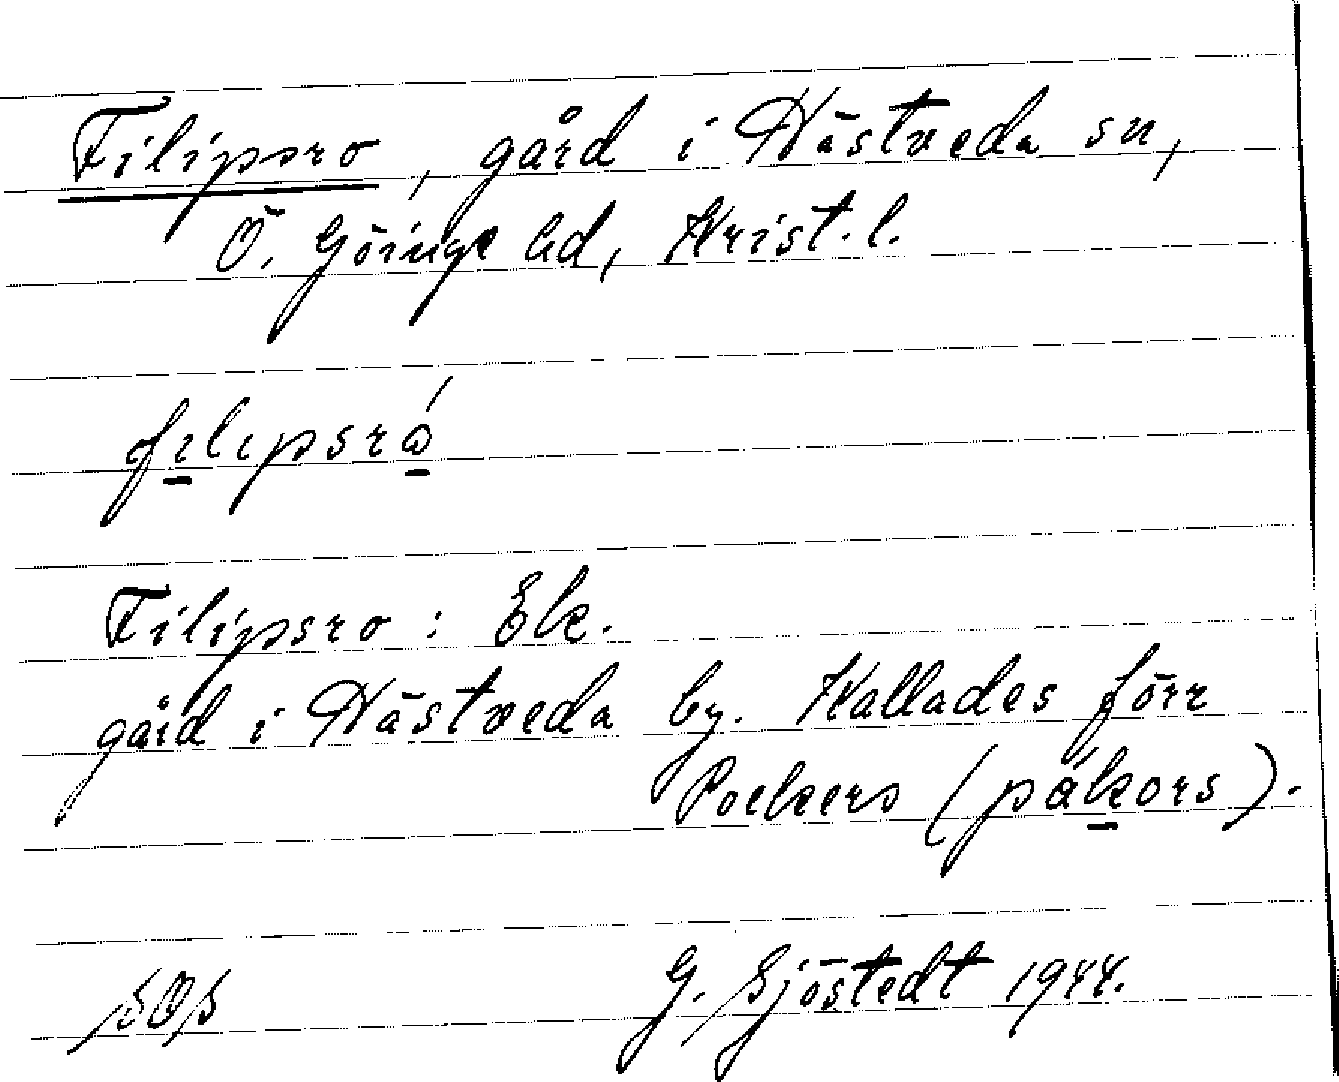 Filipsro, gård i Hästveda sn,
Ö. Göinge hd, Krist. l.
filipsró
Filipsro : Ek.
gård i Hästveda by. Kallades förr
Pockers (påkors).
SOS G. Sjöstedt 1944.